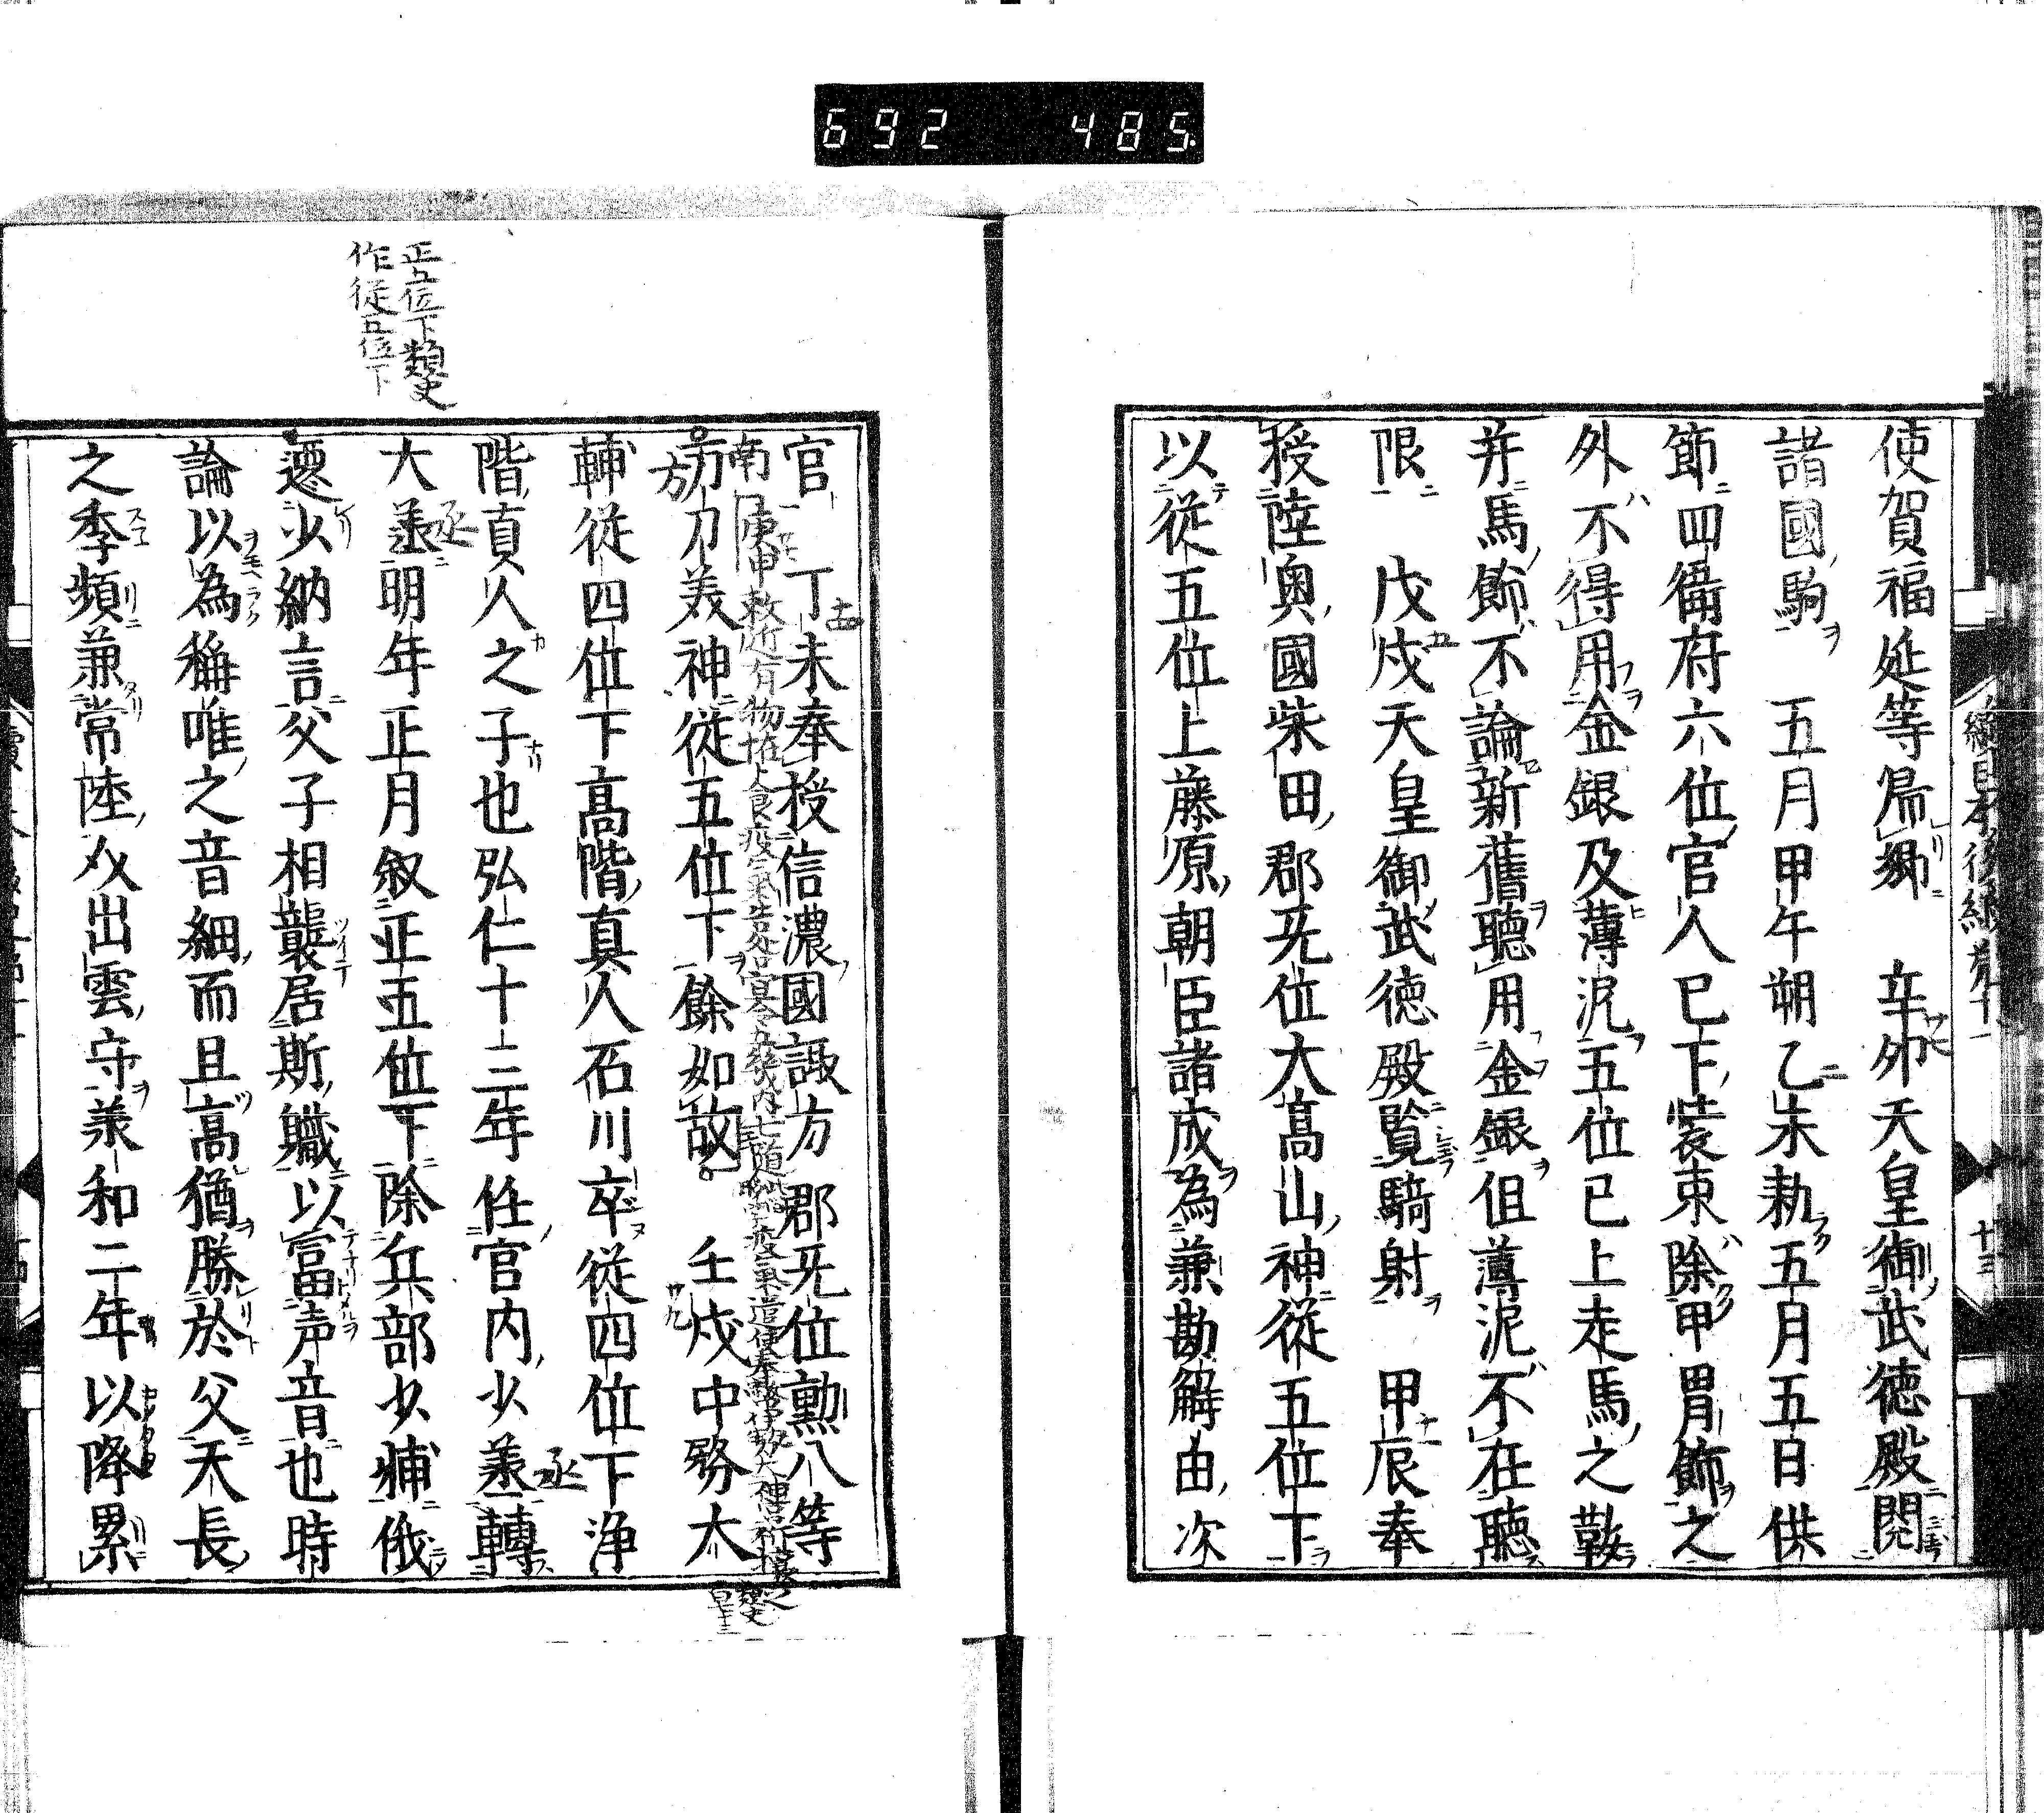 692 485
使賀福延等帰郷 辛卯天皇御武徳殿閲
諸國駒 五月甲午朔乙未勅五月五日供
節四衛府六位官人已下裝束除甲冑飾之
外不得用金銀及薄泥五位已上走馬之鞍
并馬飾不論新舊聴用金銀但薄泥不在聴
限 戊戌天皇御武徳殿覧騎射 甲辰奉
授陸奥國柴田郡无位大高山神從五位下
以從五位上藤原朝臣諸成為兼勘解由次
官 丁未奉授信濃國諏方郡无位勲八等
南
方刀美神從五位下餘如故 壬戌中務大
輔從四位下高階真人石川卒從四位下浄
階真人之子也弘仁十二年任官内少丞轉
大丞明年正月叙正五位下除兵部少輔俄
遷少納言父子相襲居斯職以富声音也時
論以為稱唯之音細而且高猶勝於父天長
之季頻兼常陸出雲守兼和二年以降累
正五位下類史
作從五位下